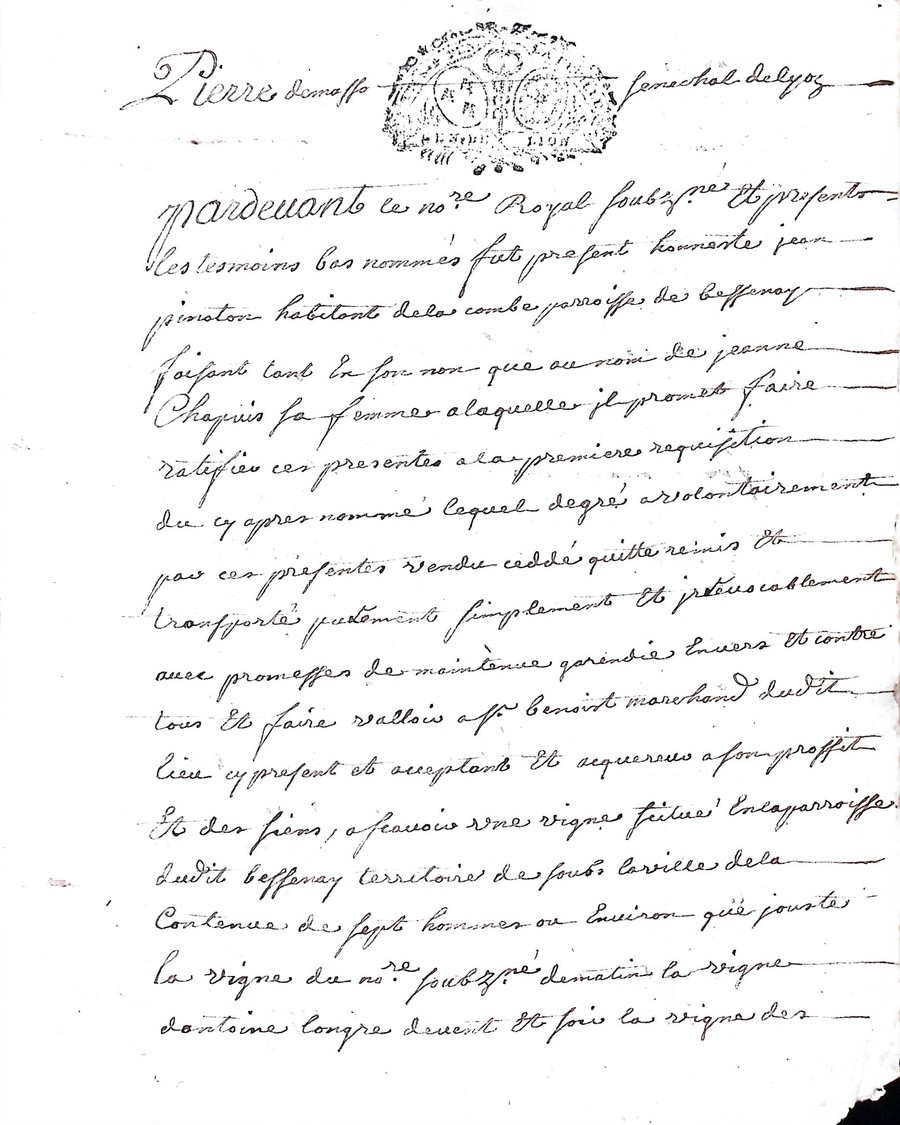 Pierre demasso senechal delyon
pardevant le no.re Royal soubz.né Et presents
les tesmoins bas nommés fut present honneste jean
pinaton habitant dela combe parroisse de bessenay
faisant tant En son non que au nom de jeanne
Chapuis sa femme a laquelle jl promet faire
ratifier ces presentes ala premiere requisition
du cy apres nommé lequel degré a volontairement
par ces presentes vendu ceddé quitte remis Et
transporté purement simplement Et jrrevocablement
avec promesses de maintenue garendie Envers Et contre
tous Et faire valloir a sr benoist marchand dudit
lieu cy present et acceptant Et acquereur a son proffit
Et des siens, ascavoir vne vigne scitué Enlaparroisse
dudit bessenay territoire de soubs laville dela
Contenue de sept hommes ou Environ que jouste
la vigne du no.re soubz.né dematin la vigne
dantoine longre devent Et soir la vigne des